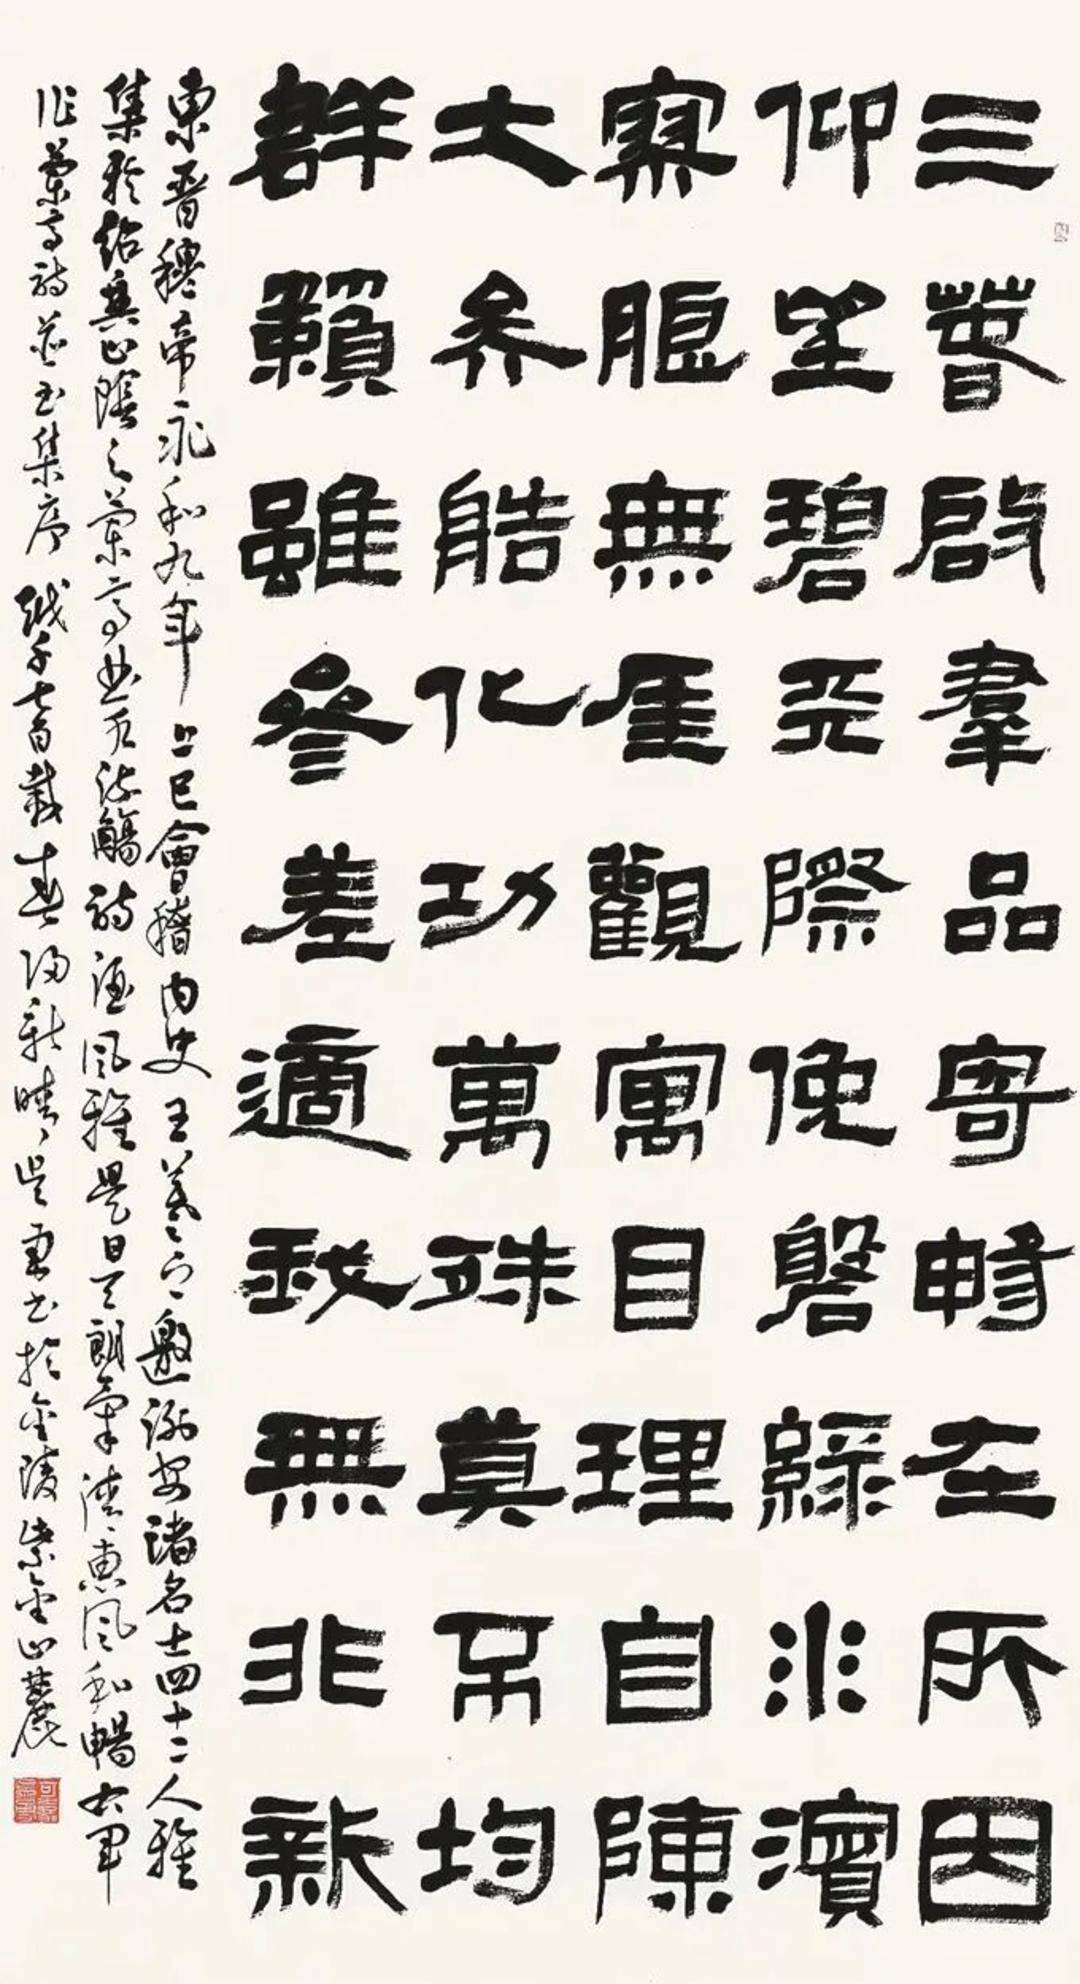 三春啟羣品寄暢在所因
仰望碧天際俯磐綠水濱
寥朗無厓觀寓目理自陳
大矣造化功萬殊莫不均
群籟雖參差適我無非新
東晉穆帝永和九年上巳會稽內史王羲之邀謝安諸名士四十二人雅
集於紹興山陰之蘭亭曲水流觴詩酒風雅是日天朗氣清惠風和暢右軍
作蘭亭詩並書集序 越千七百載春歸新晴 書於金陵紫金山麓